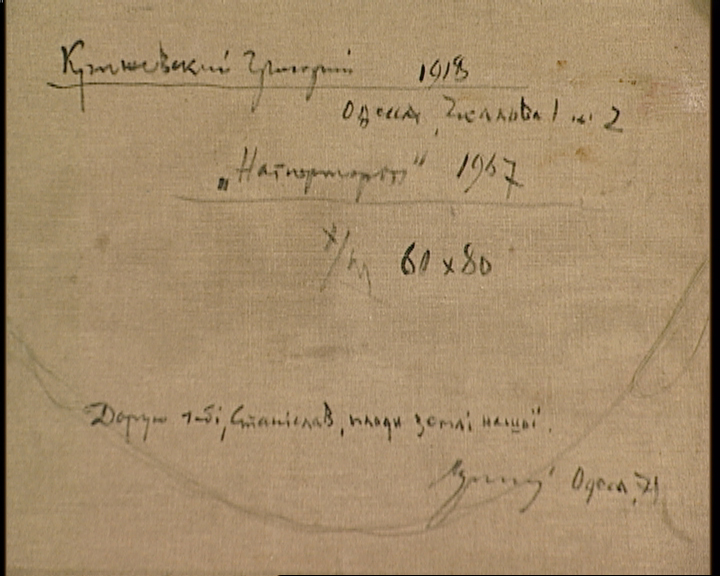 Крижевский Григорий 1918
Одесса, Чкалова 1 кв 2
„Натюрморт" 1967
х/м 60 х 80
"Дарую тобі, Станіслав, плоди землі нашої".
Одеса, 71